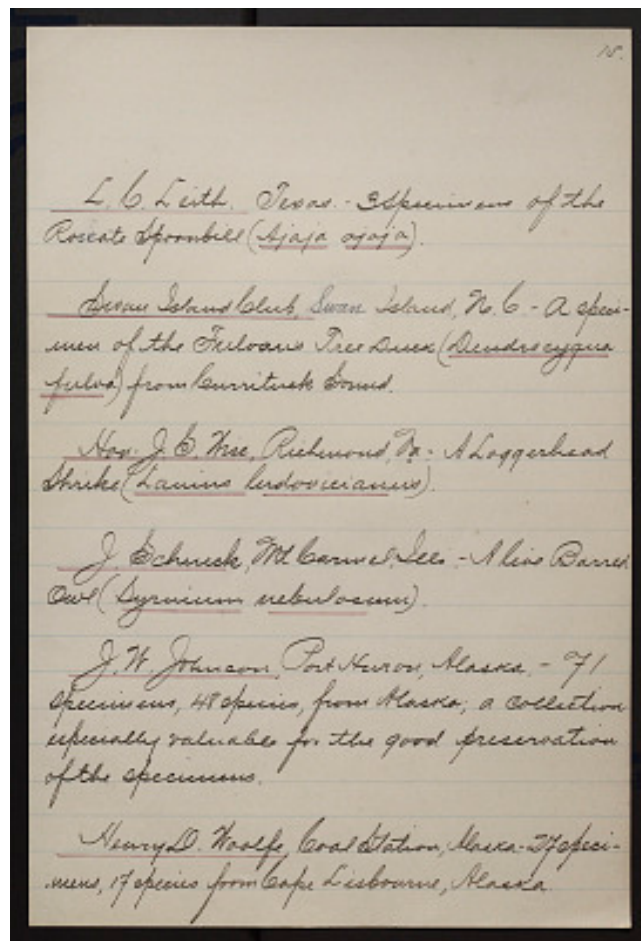 15.
L. C. Leith. Texas. - 3 Specimens of the
Roseate Spoonbill (Ajaja ajaja).
Swan Island Club, Swan Island, N. C. - A speci-
men of the Fulvous Tree Duck (Dendrocygna
fulva) from Currituck Sound.
Hon. J. C. Wise, Richmond, Va. - A Loggerhead
Shrike (Lanius ludovicianus).
J. Schneck, Mt Carmel, Ills. - A live Barred
Owl (Syrnium nebulosum).
J. W. Johnson, Port Huron, Alaska. - 71
specimens, 48 species, from Alaska; a collection
especially valuable for the good preservation
of the specimens.
Henry D. Woolfe, Coal Station, Alaska - 27 speci-
mens, 17 species from Cape Lisbourne, Alaska.